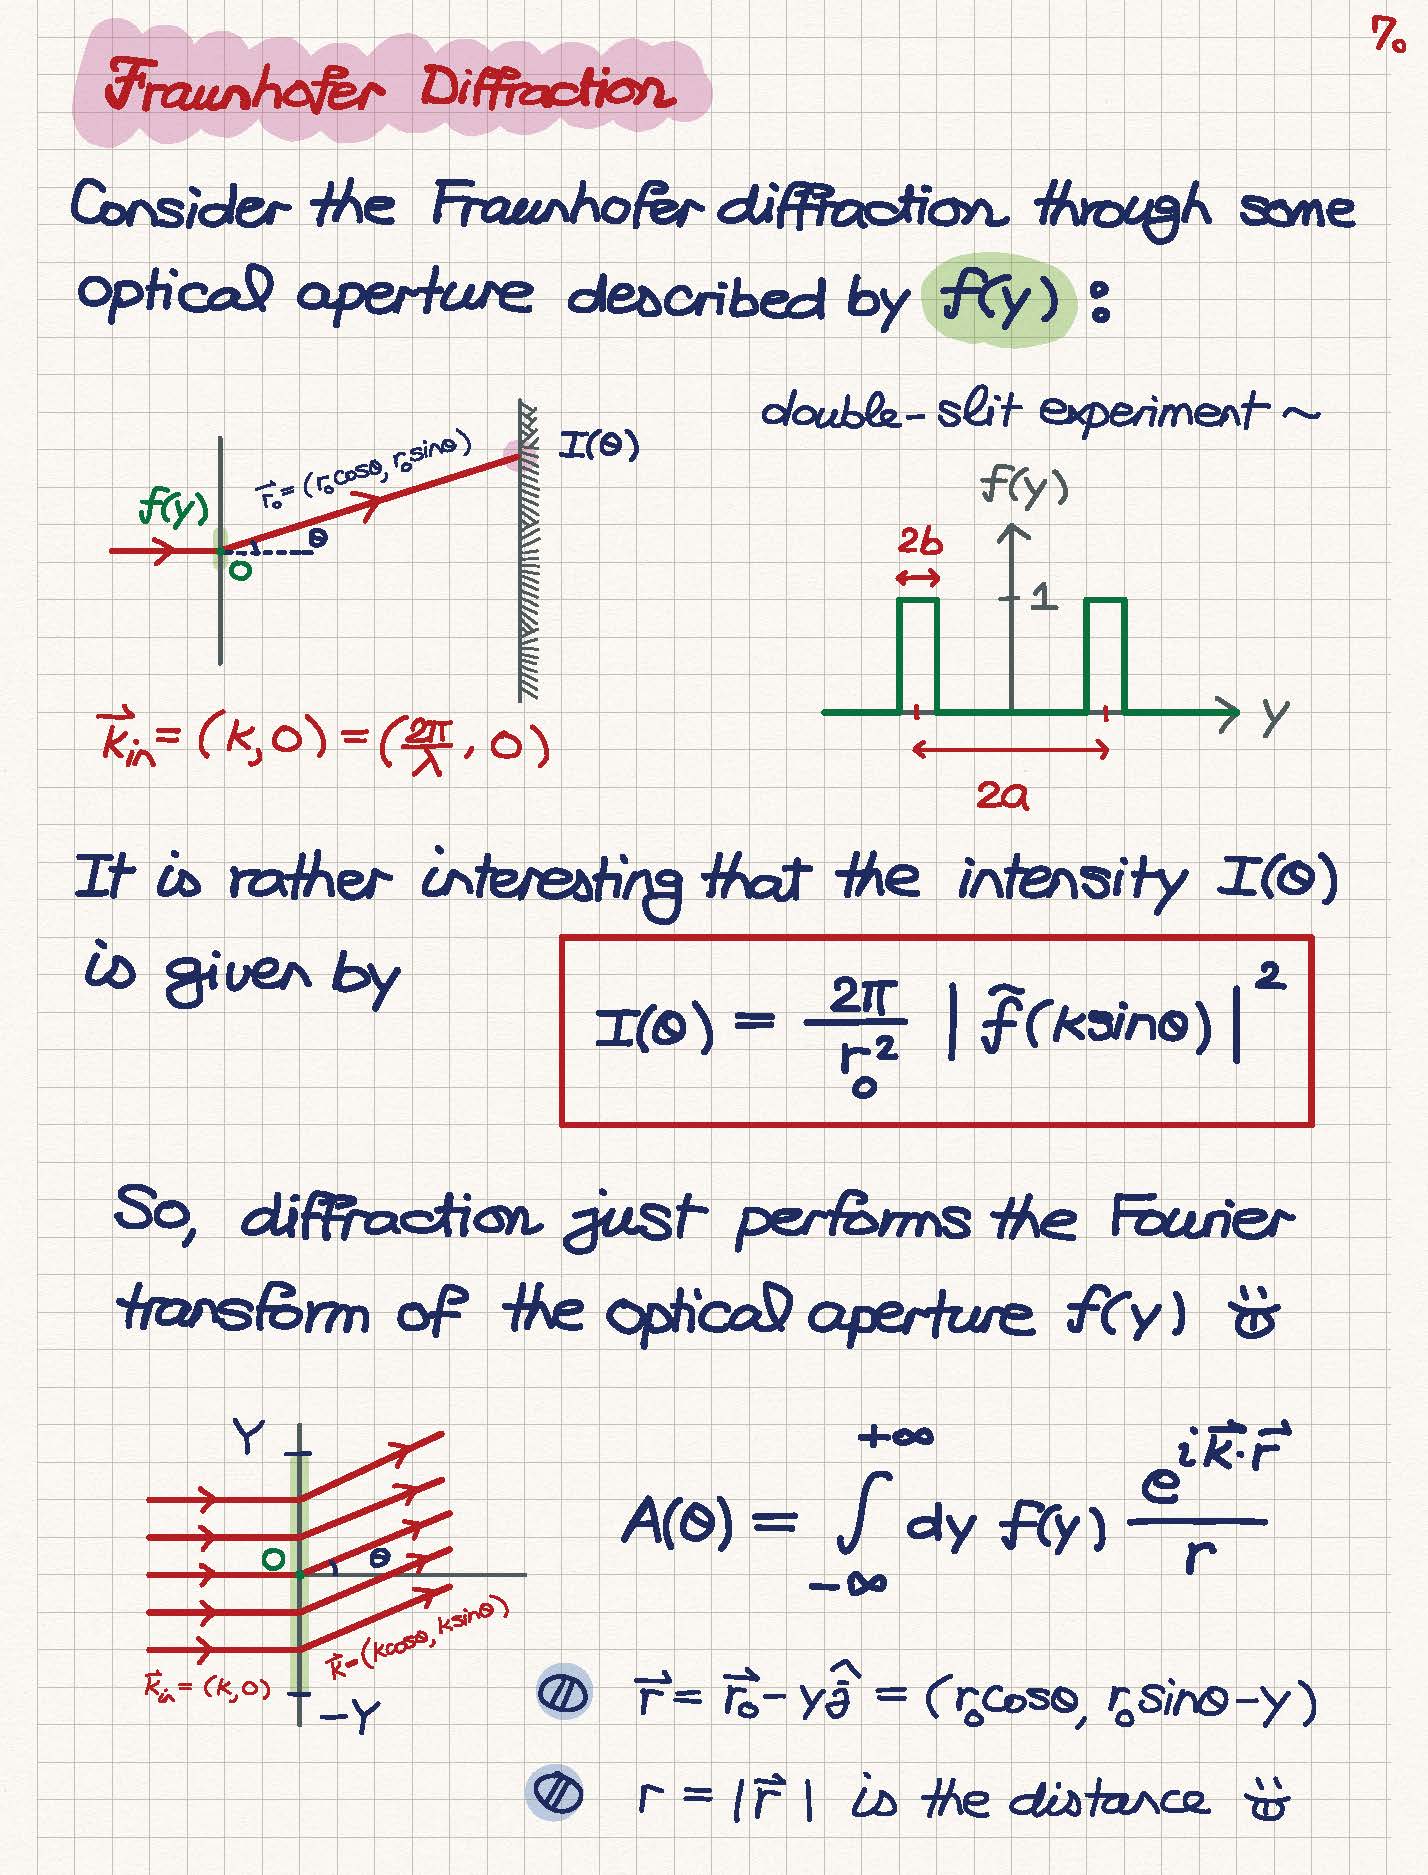 7.
Fraunhofer Diffraction
Consider the Fraunhofer diffraction through some
optical aperture described by f(y) :
double-slit experiment ~
r⃗₀ = (r₀cosθ, r₀sinθ)
I(θ)
f(y)
θ
O
f(y)
2b
1
y
2a
k⃗in = (k, 0) = (2π/λ, 0)
It is rather interesting that the intensity I(θ)
is given by
I(θ) = 2π/r₀² |f̃(ksinθ)|²
So, diffraction just performs the Fourier
transform of the optical aperture f(y)
Y
O
θ
k⃗in = (k, 0)
k⃗ = (kcosθ, ksinθ)
-Y
A(θ) = ∫₋∞^+∞ dy f(y) e^{ik⃗·r⃗}/r
r⃗ = r⃗₀ - yĵ = (r₀cosθ, r₀sinθ - y)
r = |r⃗| is the distance